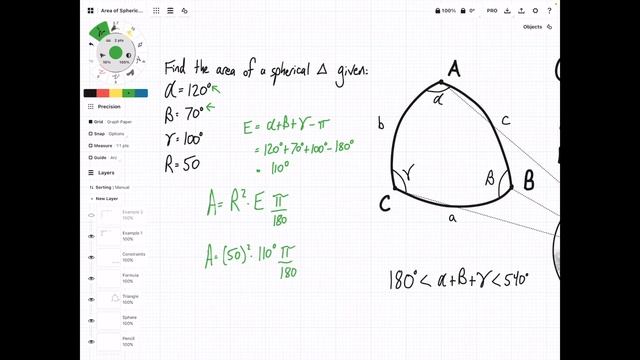 Area of Spheric...
100%
0°
PRO
Objects
2 pts
18%
100%
Precision
Grid : Graph Paper
Snap : Options
Measure : 1:1 pts
Guide : Arc
Layers
Sorting : Manual
New Layer
Example 2
100%
Example 1
100%
Constraints
100%
Formula
100%
Triangle
100%
Sphere
100%
Pencil
100%
Find the area of a spherical Δ given:
α = 120°
β = 70°
γ = 100°
R = 50
E = α+β+γ-π
= 120°+70°+100°-180°
= 110°
A = R² · E π/180
A = (50)² · 110° π/180
A
α
b
c
γ
β
B
C
a
180° < α+β+γ < 540°